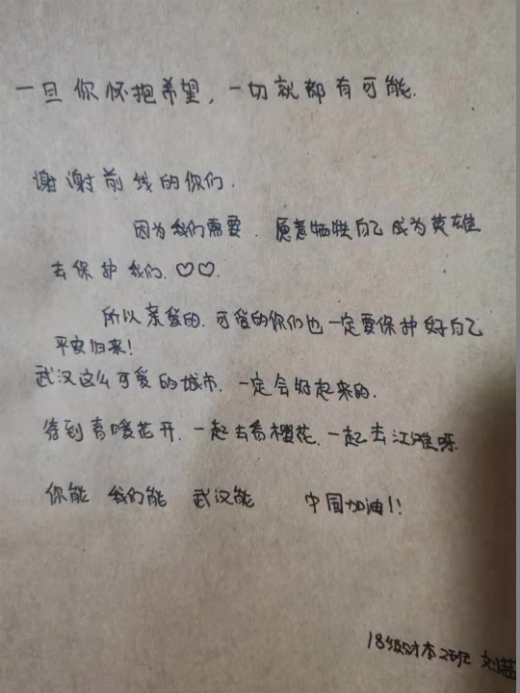 一旦你怀抱希望，一切就都有可能.
谢谢前线的你们.
因为我们需要.愿意牺牲自己成为英雄
去保护我们.♡♡.
所以亲爱的.可爱的你们也一定要保护好自己
平安归来！
武汉这么可爱的城市.一定会好起来的.
待到春暖花开.一起去看樱花.一起去江滩呀
你能 我们能 武汉能 中国加油！！
18级财本2班 刘